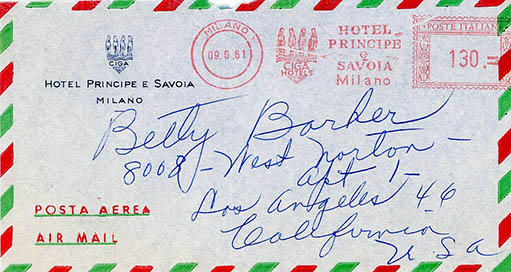 CIGA
HOTEL PRINCIPE E SAVOIA
MILANO
MILANO
09.6.61
CIGA
HOTELS
HOTEL
PRINCIPE
E
SAVOIA
Milano
POSTE ITALIANE
130
Betty Barker
8008 - West Norton -
apt 1 -
Los Angeles 46
California
USA
POSTA AEREA
AIR MAIL